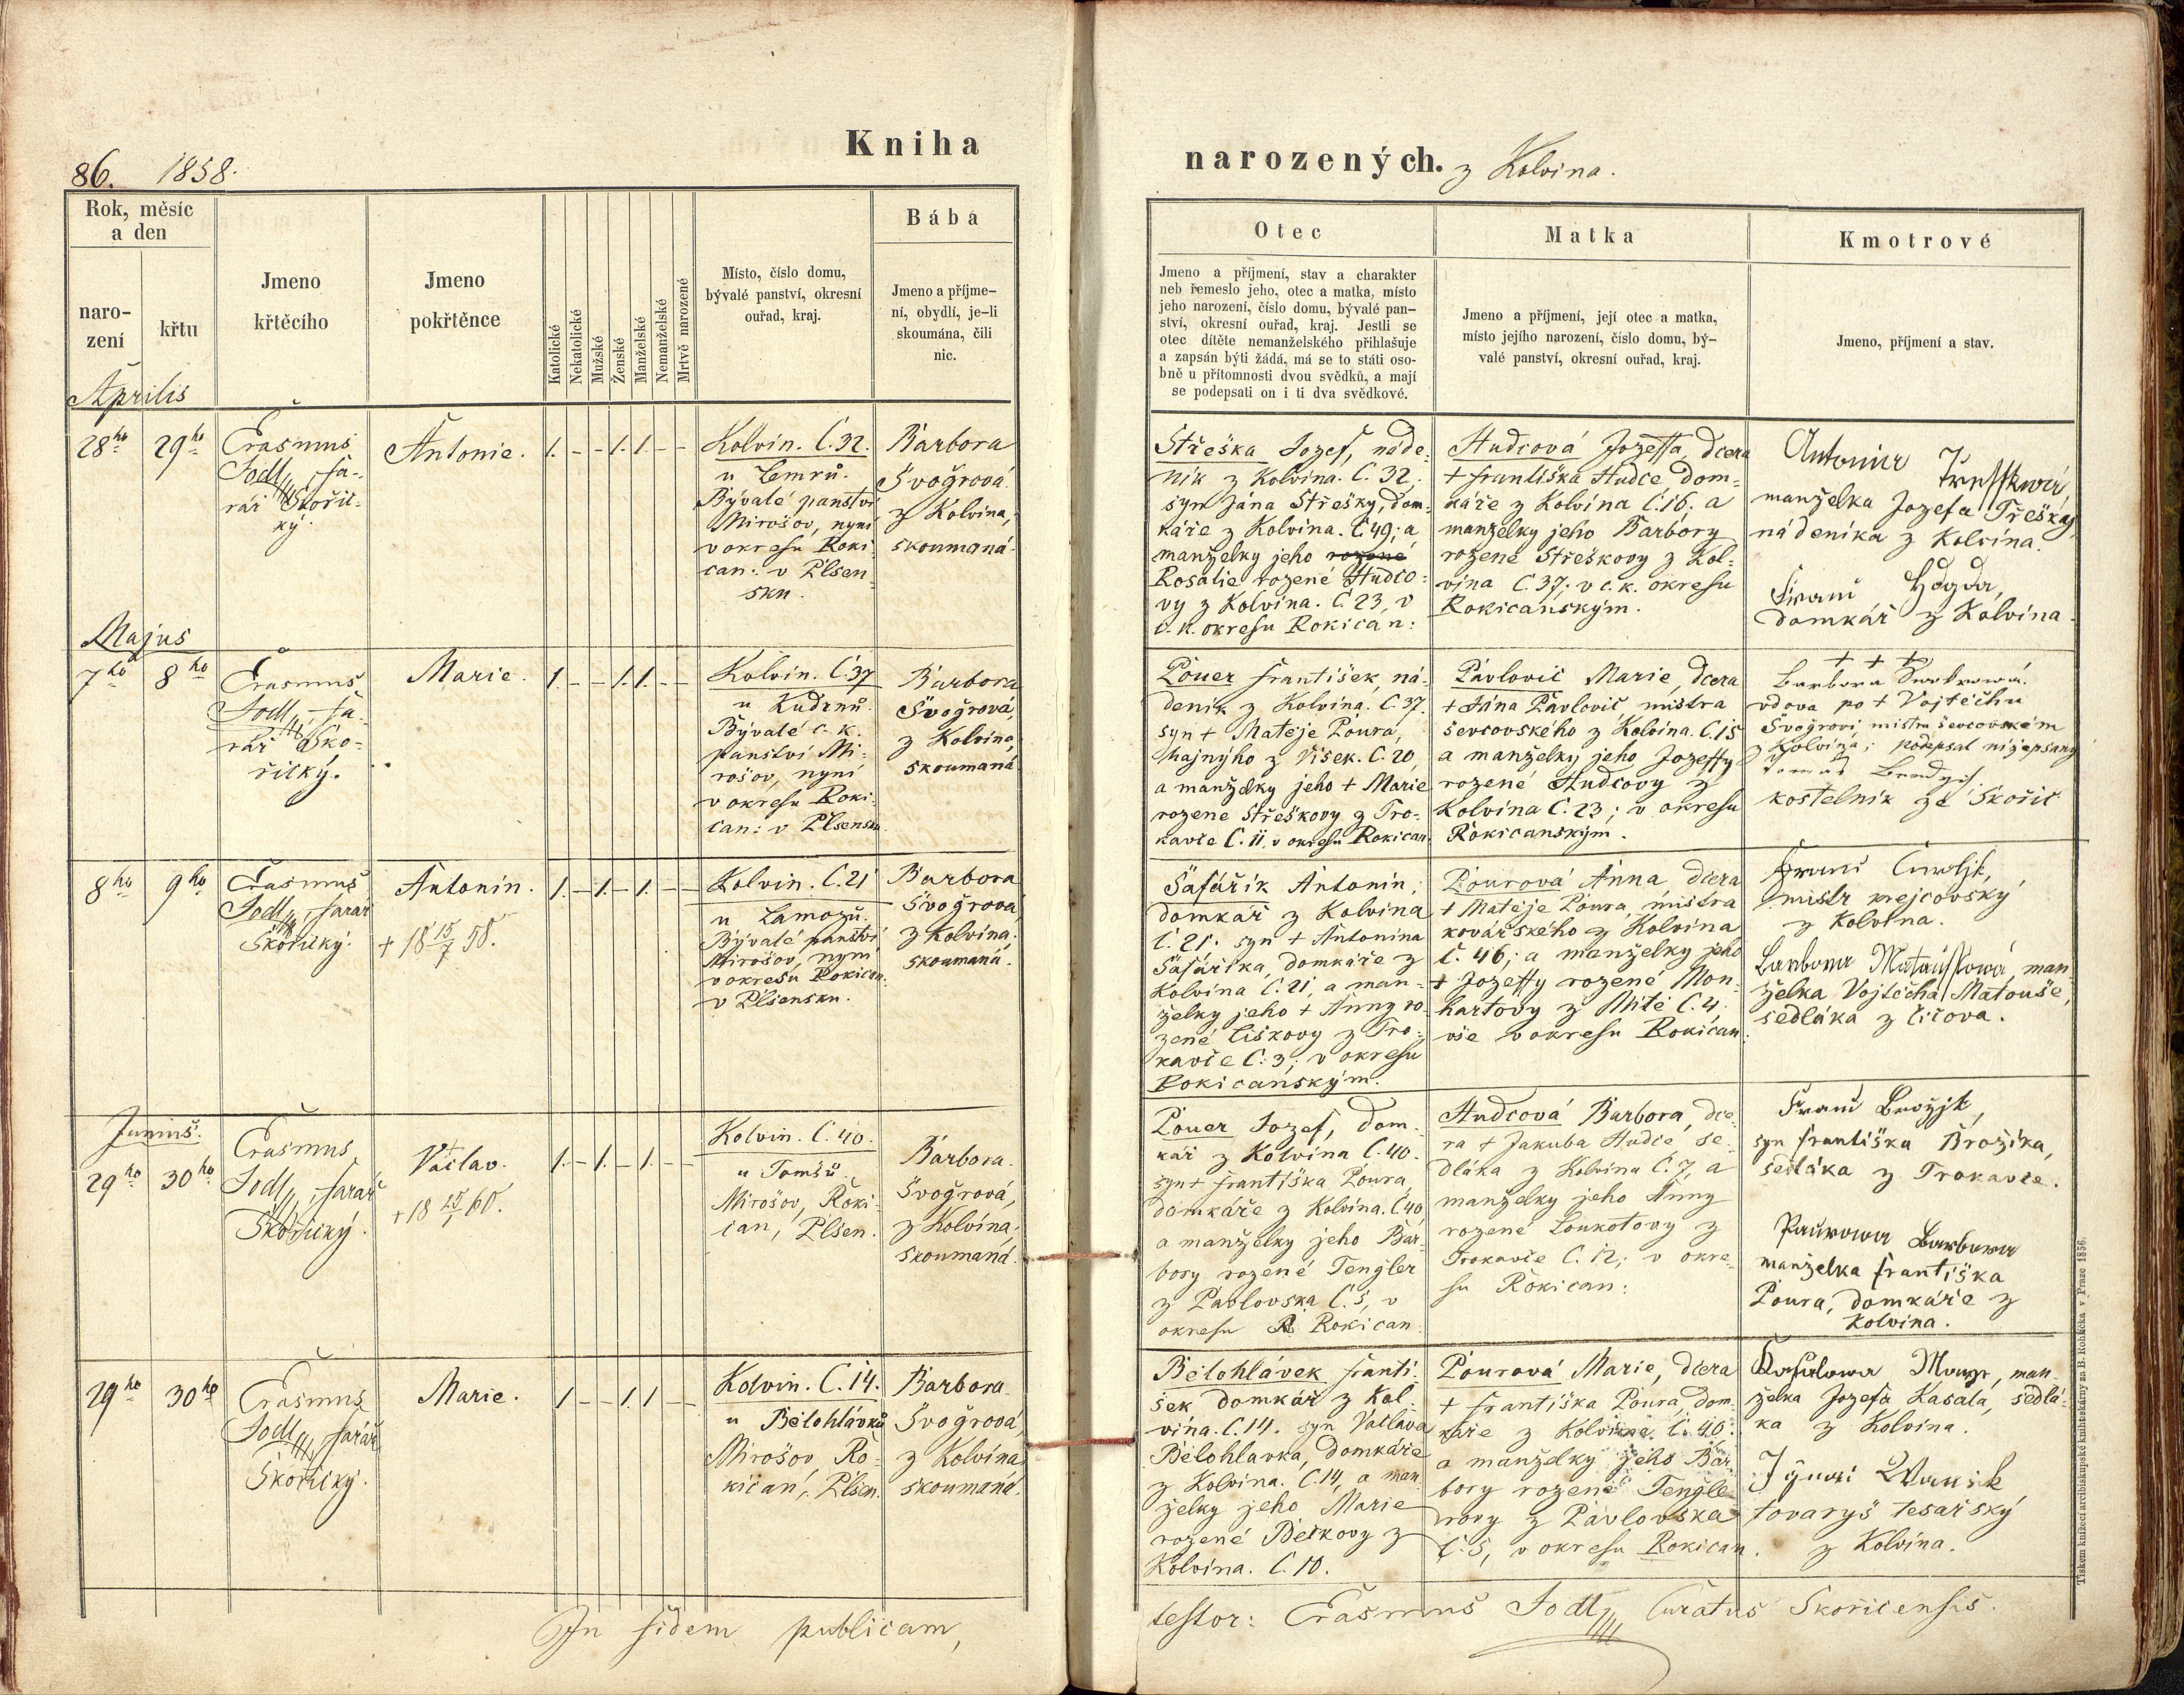 86. 1858.
Kniha
narozených. z Kolvina.
Rok, měsíc
a den
naro-
zení
křtu
Jmeno
křtěcího
Jmeno
pokřtěnce
Katolické
Nekatolické
Mužské
Ženské
Manželské
Nemanželské
Mrtvě narozené
Místo, číslo domu,
bývalé panství, okresní
ouřad, kraj.
Bába
Jmeno a příjme-
ní, obydlí, je-li
skoumána, čili
nic.
Otec
Jmeno a příjmení, stav a charakter
neb řemeslo jeho, otec a matka, místo
jeho narození, číslo domu, bývalé pan-
ství, okresní ouřad, kraj. Jestli se
otec dítěte nemanželského přihlašuje
a zapsán býti žádá, má se to státi oso-
bně u přítomnosti dvou svědků, a mají
se podepsati on i ti dva svědkové.
Matka
Jmeno a příjmení, její otec a matka,
místo jejího narození, číslo domu, bý-
valé panství, okresní ouřad, kraj.
Kmotrové
Jmeno, příjmení a stav.
Aprilis
28ho
29ho
Erasmus
Jodl, fa-
rář Skořic-
ký.
Antonie.
1. - - 1. 1. - -
Kolvin. Č. 32.
u Cemrů.
Bývalé panství
Mirošov, nyní
v okresu Roki
can: v Plsen-
sku.
Barbora
Švogrová
z Kolvína,
skoumaná.
Střeška Jozef, náde-
ník z Kolvína. Č. 32,
syn Jána Střešky, dom-
káře z Kolvína. Č 49; a
manželky jeho rozené
Rosalie rozené Hudco-
vy z Kolvína. Č 23, v
c. k. okresu Rokican:
Hudcová Jozeffa, dcera
+ františka Hudce, dom-
káře z Kolvína Č.16; a
manželky jeho Barbory
rozené Střeškovy z Kol-
vína Č 37; v c. k. okresu
Rokicanským.
Antonie
manželka Jozefa Třešky,
nádeníka z Kolvína.
domkář z Kolvína.
Majus
7ho
8ho
Erasmus
Jodl, fa-
rář Sko-
řický.
Marie.
1. - - 1. 1. - -
Kolvin. Č. 37
u Kudrnů.
Bývalé c. k.
panství Mi-
rošov, nyní
v okresu Roki-
can: v Plsensku
Barbora
Švogrová,
z Kolvína,
skoumaná
Pouer františek, ná-
deník z Kolvína. Č. 37.
syn + Matěje Poura,
hajnýho z Vísek. Č. 20,
a manželky jeho + Marie
rozené Střeškovy z Tro-
kavce Č. 11, v okresu Rokican.
Pavlovič Marie, dcera
+ Jána Pavlovič mistra
ševcovského z Kolvína. Č. 15
a manželky jeho Jozeffy
rozené Hudcovy z
Kolvína Č. 23; v okresu
Rokicanským.
+ + +
Barbora
vdova po + Vojtěchu
Švogrovi, mistru ševcovském
z Kolvína; podepsal nížepsaný
Tomáš
kostelník ze Skořic
8ho
9ho
Erasmus
Jodl, farář
Skořický.
Antonín.
+ 18 15/7 58.
1. - 1. - 1. - -
Kolvin. Č. 21
u Lamozů.
Bývalé panství
Mirošov, nyní
v okresu Rokican.
v Plsensku.
Barbora
Švogrová
z Kolvína.
skoumaná.
Šafařík Antonín,
domkář z Kolvína
č. 21. syn + Antonína
Šafaříka, domkáře z
Kolvína Č. 21, a man-
želky jeho + Anny ro-
zené Liškovy z Tro-
kavce Č. 3; v okresu
Rokicanským.
Pourová Anna, dcera
+ Matěje Poura, mistra
kovářského z Kolvína
č. 46; a manželky jeho
+ Jozeffy rozené Mon-
hartovy z Mité Č. 4.
vše v okresu Rokican.
mistr krejcovský
z Kolvína.
Barbora Matauschowá, man-
želka Vojtěcha Matouše,
sedláka z Číčova.
Junius.
29ho
30ho
Erasmus
Jodl, farář
Skořický.
Václav.
+ 18 15/1 60.
1. - 1. - 1. - -
Kolvin. Č. 40.
u Tomšů.
Mirošov, Roki-
can, Plsen.
Barbora
Švogrová,
z Kolvína,
skoumaná.
Pouer Jozef, dom-
kář z Kolvína Č. 40.
syn + františka Poura,
domkáře z Kolvína. Č 40
a manželky jeho Bar-
bory rozené Tengler
z Pavlovska Č. 5, v
okresu R Rokican.
Hudcová Barbora, dce-
ra + Jakuba Hudce se-
dláka z Kolvína Č. 7, a
manželky jeho Anny
rozené Loukotovy z
Trokavce Č. 12; v okre-
su Rokican:
Franc Brožjk,
syn františka Brožíka,
sedláka z Trokavce.
Paurowa Barbora
manželka františka
Poura, domkáře z
Kolvína.
29ho
30ho
Erasmus
Jodl, farář
Skořický.
Marie.
1 - - 1. 1 - -
Kolvin. Č. 14.
u Bělohlávků
Mirošov, Ro-
kican, Plsen.
Barbora
Švogrová,
z Kolvína
skoumaná.
Bělohlávek franti-
šek domkář z Kol-
vína. Č. 14. syn Václava
Bělohlavka, domkáře
z Kolvína. Č. 14, a man-
želky jeho Marie
rozené Bečkovy z
Kolvína. Č. 10.
Pourová Marie, dcera
+ františka Poura, dom-
káře z Kolvína. č. 40.
a manželky jeho Bar-
bory rozené Tengle-
rovy z Pavlovska
č. 5, v okresu Rokican.
man-
želka Jozefa Kasala, sedlá-
ka z Kolvína.
tovaryš tesařský
z Kolvína.
In fidem publicam,
testor: Erasmus Jodl, Curatus Skoricensis.
Tiskem knížecí arcibiskupské knihtiskárny za B. Rohlíčka v Praze 1856.